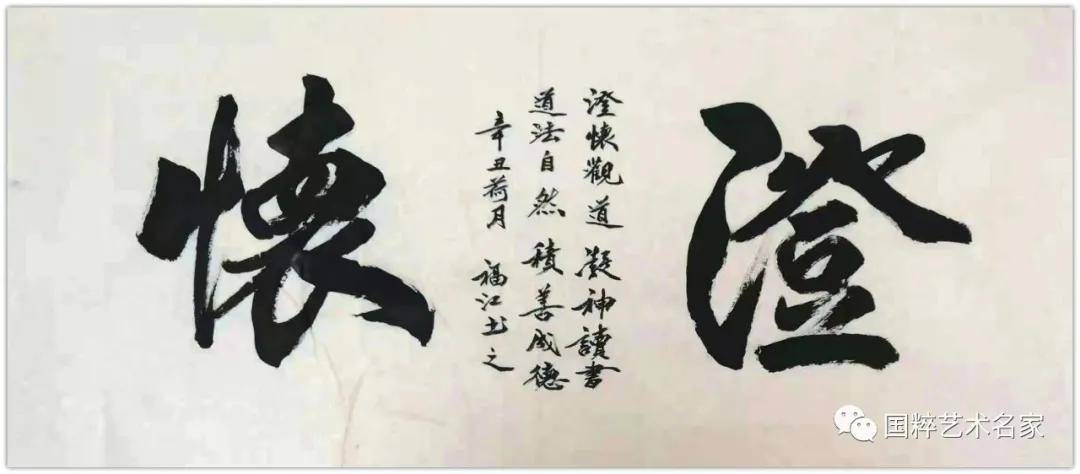 澄懷
澄懷觀道 凝神讀書
道法自然 積善成德
辛丑荷月 福江书之
国粹艺术名家